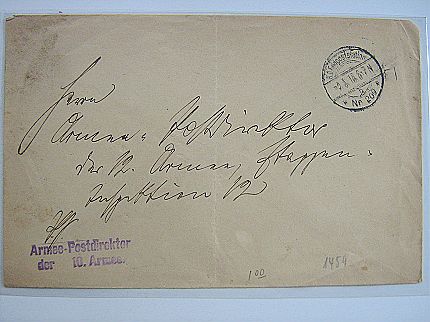 Herrn
Armee-Postdirektor
der 12. Armee, Etappen-
Inspektion 12
Armee-Postdirektor
der 10. Armee.
Nr. 209
1 00
1454